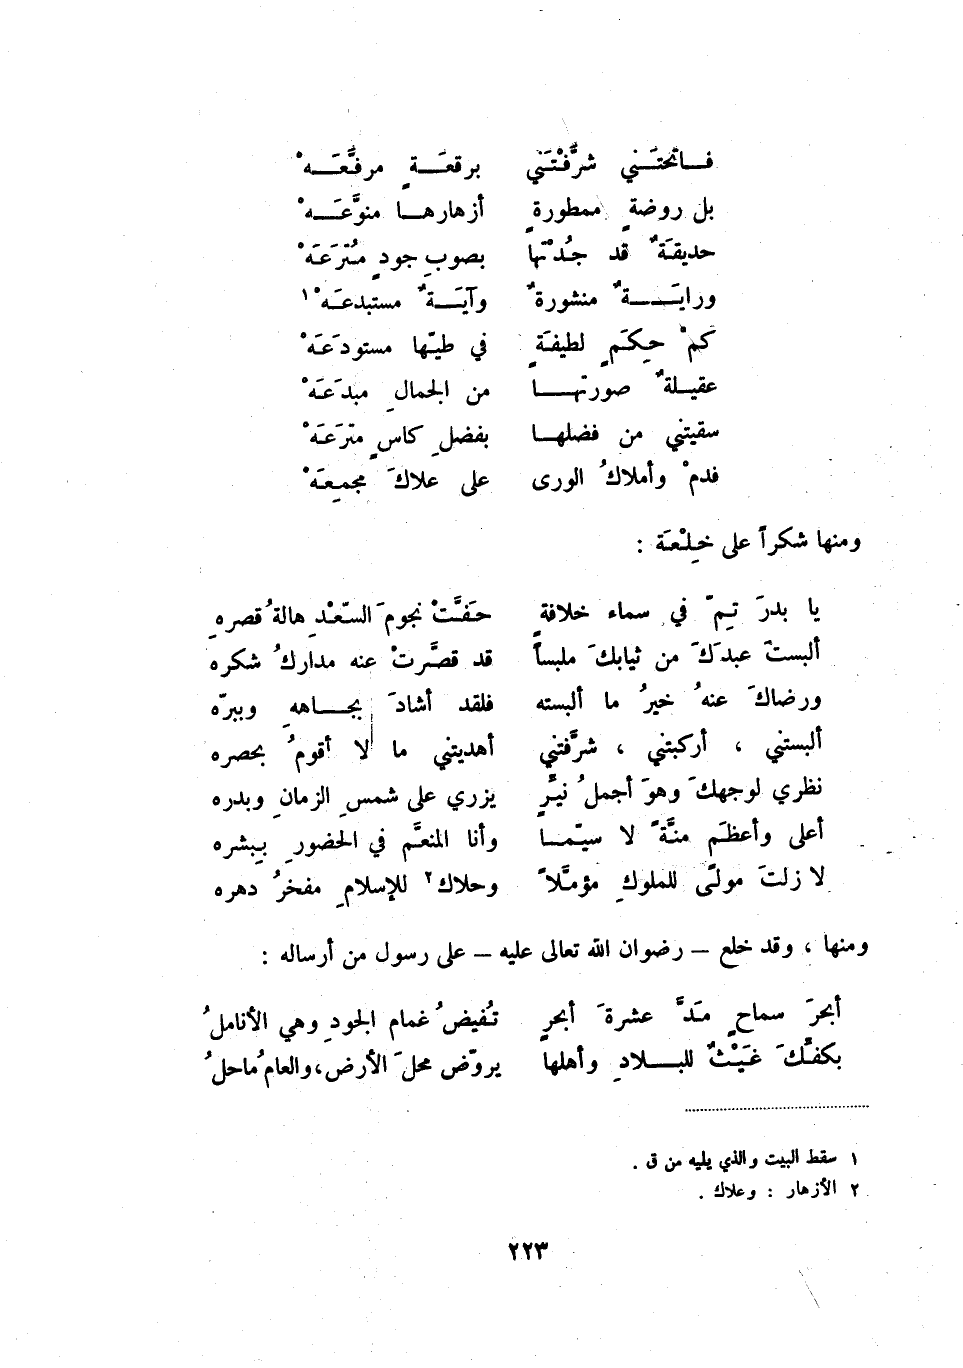 فاتحتَني شرَّفْتَني برقعَةٍ مرفَّعَهْ
بل روضةٍ ممطورةٍ أزهارها منوَّعَهْ
حديقةٌ قد جُدْتَها بصوبِ جودٍ مُتْرَعَهْ
ورايَةٌ منشورةٌ وآيَةٌ مستبدعَهْ١
كمْ حِكَمٍ لطيفةٍ في طيّها مستودَعَهْ
عقيلةٌ صورتها من الجمالِ مبدَعَهْ
سقيتني من فضلها بفضلِ كاسٍ مترَعَهْ
فدمْ وأملاكُ الورى على علاكَ مجمِعَهْ
ومنها شكراً على خِلْعَة :
يا بدرَ تمِّ في سماء خلافةٍ حَفَّتْ نجومَ السّعْدِ هالةُ قصرهِ
ألبستَ عبدَكَ من ثيابكَ ملبساً قد قصَّرتْ عنه مداركُ شكره
ورضاكَ عنهُ خيرُ ما ألبسته فلقد أشادَ بجاههِ وببرّه
ألبستني ، أركبتني ، شرَّفتني أهديتني ما لا أقومُ بحصره
نظري لوجهكَ وهوَ أجملُ نيِّرٍ يزري على شمسِ الزمانِ وبدره
أعلى وأعظَم منَّةً لا سيّما وأنا المنعَّم في الحضورِ ببِشره
لا زلتَ مولًى للملوكِ مؤمَّلاً وحلاك٢ للإسلامِ مفخرُ دهره
ومنها ، وقد خلع – رضوان الله تعالى عليه – على رسول من أرساله :
أبحرَ سماحٍ مَدَّ عشرةَ أبحرٍ تُفيضُ غمام الجودِ وهي الأناملُ
بكفَّكَ غَيْثٌ للبلادِ وأهلها يروّض محلَ الأرض، والعامُ ماحلُ
١ سقط البيت والذي يليه من ق .
٢ الأزهار : وعلاك .
٢٢٣